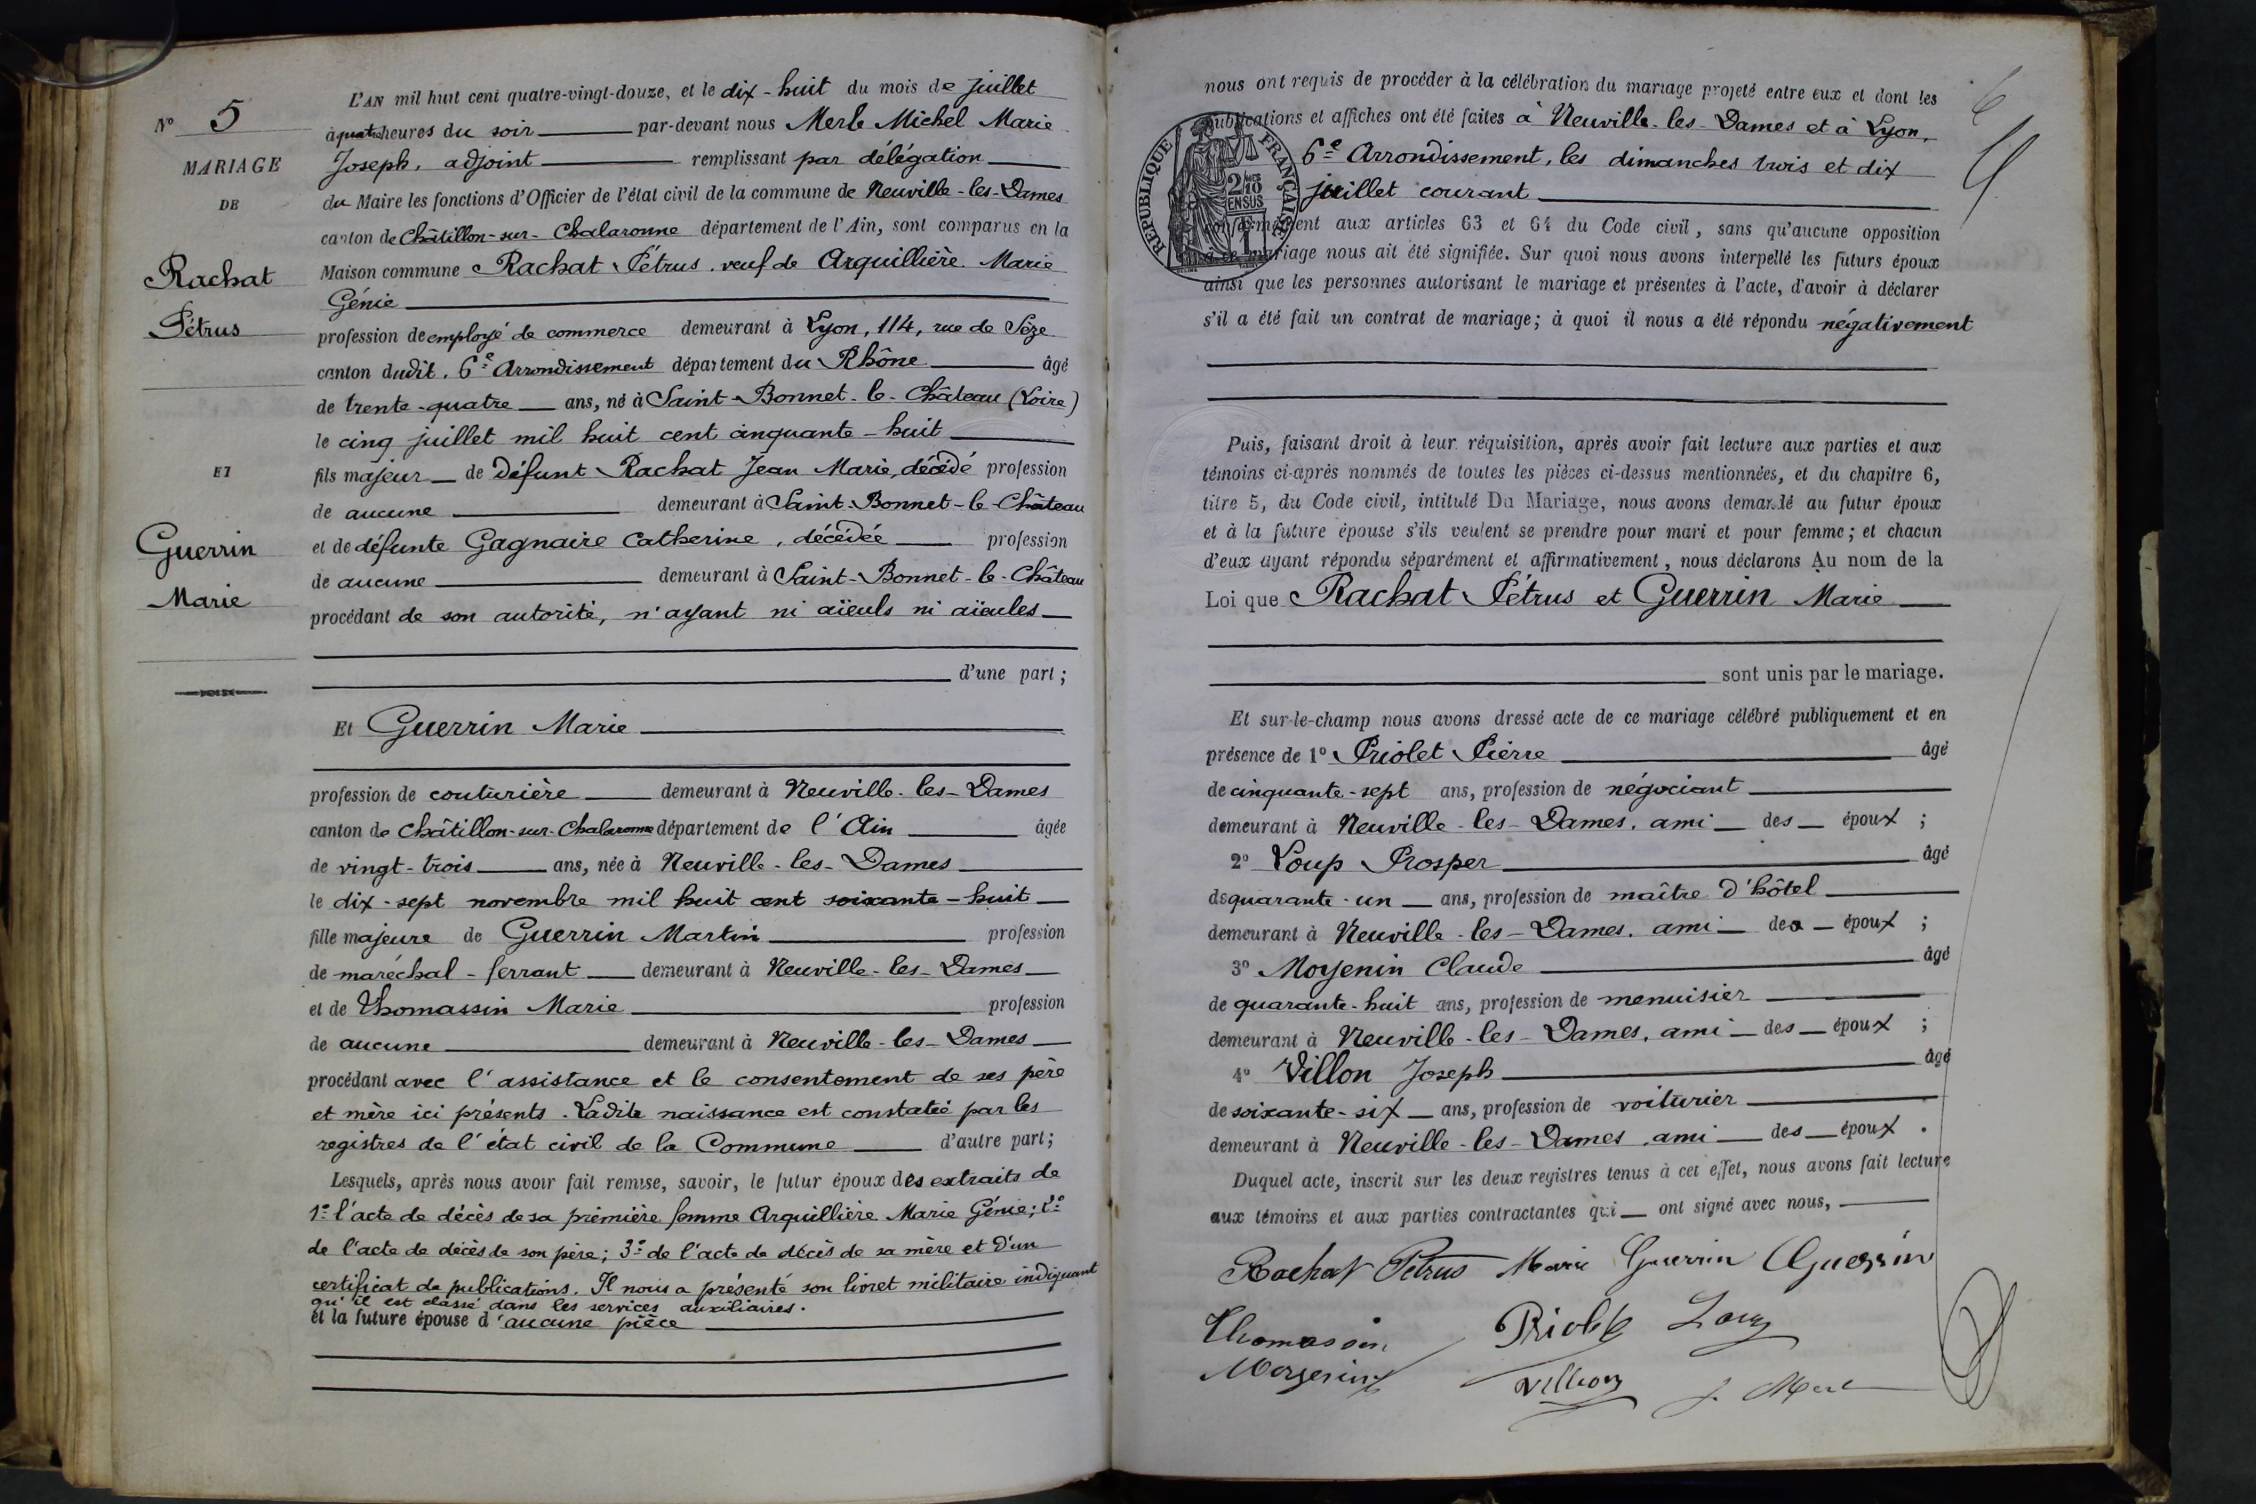 N° 5
MARIAGE
DE
Rachat
Pétrus
ET
Guerrin
Marie
L'AN mil huit cent quatre-vingt-douze, et le dix-huit du mois de juillet
à quatre heures du soir par-devant nous Merle Michel Marie
Joseph, adjoint remplissant par délégation
du Maire les fonctions d'Officier de l'état civil de la commune de Neuville-les-Dames
canton de Châtillon-sur-Chalaronne département de l'Ain, sont comparus en la
Maison commune Rachat Pétrus, veuf de Arquillière Marie
Génie
profession de employé de commerce demeurant à Lyon, 114, rue de Sèze
canton dudit, 6e Arrondissement département du Rhône âgé
de trente-quatre ans, né à Saint-Bonnet-le-Château (Loire)
le cinq juillet mil huit cent cinquante-huit
fils majeur de Défunt Rachat Jean Marie, décédé profession
de aucune demeurant à Saint-Bonnet-le-Château
et de défunte Gagnaire Catherine, décédée profession
de aucune demeurant à Saint-Bonnet-le-Château
procédant de son autorité, n'ayant ni aïeuls ni aïeules
d'une part;
Et Guerrin Marie
profession de couturière demeurant à Neuville-les-Dames
canton de Châtillon-sur-Chalaronne département de l'Ain âgée
de vingt-trois ans, née à Neuville-les-Dames
le dix-sept novembre mil huit cent soixante-huit
fille majeure de Guerrin Martin profession
de maréchal-ferrant demeurant à Neuville-les-Dames
et de Thomassin Marie profession
de aucune demeurant à Neuville-les-Dames
procédant avec l'assistance et le consentement de ses père
et mère ici présents. Ladite naissance est constatée par les
registres de l'état civil de la Commune d'autre part;
Lesquels, après nous avoir fait remise, savoir, le futur époux des extraits de
1° l'acte de décès de sa première femme Arquillière Marie Génie; 2°
de l'acte de décès de son père; 3° de l'acte de décès de sa mère et d'un
certificat de publications. Il nous a présenté son livret militaire indiquant
qu'il est classé dans les services auxiliaires.
et la future épouse d'aucune pièce
nous ont requis de procéder à la célébration du mariage projeté entre eux et dont les
publications et affiches ont été faites à Neuville-les-Dames et à Lyon,
6e Arrondissement, les dimanches trois et dix
juillet courant
conformément aux articles 63 et 64 du Code civil, sans qu'aucune opposition
à ce mariage nous ait été signifiée. Sur quoi nous avons interpellé les futurs époux
ainsi que les personnes autorisant le mariage et présentes à l'acte, d'avoir à déclarer
s'il a été fait un contrat de mariage; à quoi il nous a été répondu négativement
RÉPUBLIQUE FRANÇAISE
2/10
EN SUS
Puis, faisant droit à leur réquisition, après avoir fait lecture aux parties et aux
témoins ci-après nommés de toutes les pièces ci-dessus mentionnées, et du chapitre 6,
titre 5, du Code civil, intitulé Du Mariage, nous avons demandé au futur époux
et à la future épouse s'ils veulent se prendre pour mari et pour femme; et chacun
d'eux ayant répondu séparément et affirmativement, nous déclarons Au nom de la
Loi que Rachat Pétrus et Guerrin Marie
sont unis par le mariage.
Et sur-le-champ nous avons dressé acte de ce mariage célébré publiquement et en
présence de 1° Priolet Pierre âgé
de cinquante-sept ans, profession de négociant
demeurant à Neuville-les-Dames, ami des époux;
2° Loup Prosper âgé
de quarante-un ans, profession de maître d'hôtel
demeurant à Neuville-les-Dames, ami des époux;
3° Moyenin Claude âgé
de quarante-huit ans, profession de menuisier
demeurant à Neuville-les-Dames, ami des époux;
4° Villon Joseph âgé
de soixante-six ans, profession de voiturier
demeurant à Neuville-les-Dames, ami des époux.
Duquel acte, inscrit sur les deux registres tenus à cet effet, nous avons fait lecture
aux témoins et aux parties contractantes qui ont signé avec nous,
Rachat Pétrus Marie Guerrin Guerrin
Thomassin Priolet Loup
Moyenin Villon J. Merle